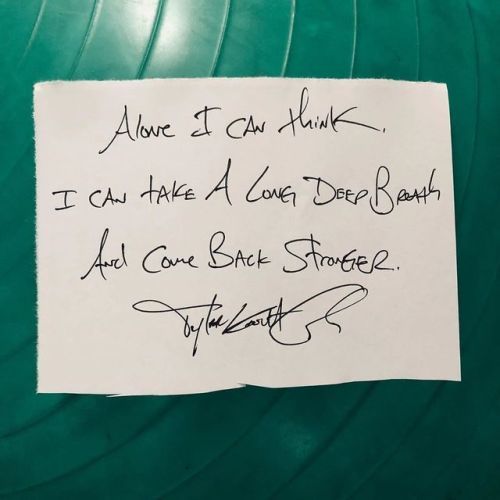 Alone I CAN thinK.
I CAN tAKE A Long DEEP BReath
And Come BAcK StronGER.
Tyler Knott